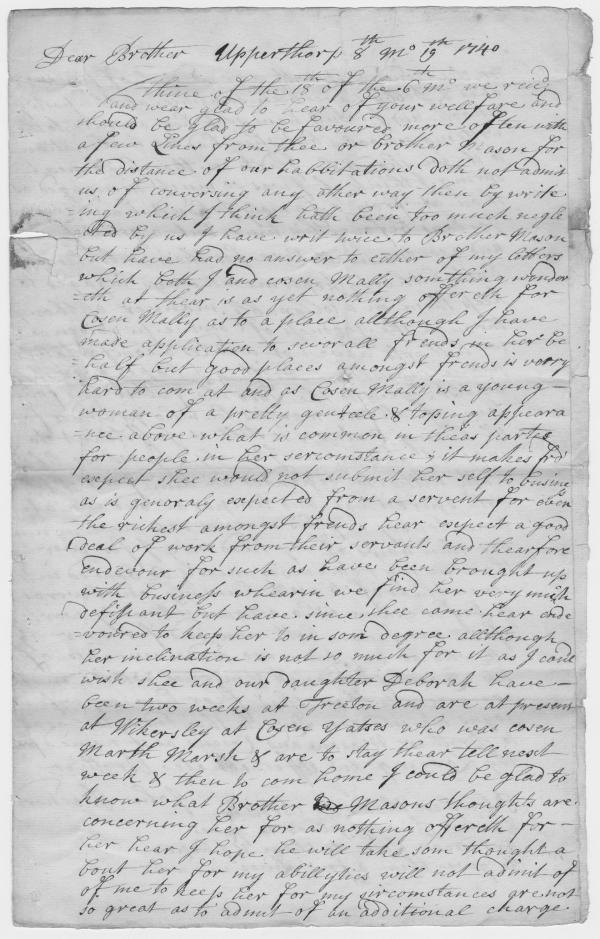 Dear Brother Upperthorp 8th Mo 19th 1740
thine of the 18th of the 6th Mo we recied
and wear glad to hear of your wellfare and
should be glad to be favoured more often with
a few Lines from thee or brother Mason for
the distance of our habbitations doth not admit
us of conversing any other way then by write
=ing which I think hath been too much negle
cted by us I have writ twice to Brother Mason
but have had no answer to either of my letters
which both I and cosen Mally something wonder
=eth at thear is as yet nothing offereth for
Cosen Mally as to a place allthough I have
made application to severall frends in her be
half but good places amongst frends is verry
hard to com at and as Cosen Mally is a young
woman of a pretty genteele & toping appeara
=nce above what is common in theas partes
for people in her sercomstance & it makes
expect shee would not submit her self to busine
as is generaly expected from a servent for even
the richest amongst frends hear expect a good
deal of work from their servants and thearfore
Endevour for such as have been brought up
with business whearin we find her very much
defissant but have since shee came hear ende
=voured to keep her to in som degree allthough
her inclination is not so much for it as I could
wish shee and our daughter Deborah have
been two weeks at Treeton and are at present
at Wikersley at Cosen Yatses who was cosen
Marth Marsh & are to stay thear tell next
week & then to com home I could be glad to
know what Brother Masons thoughts are
concerning her for as nothing offereth for
her hear I hope he will take som thought a
bout her for my abillyties will not admit of
of me to keep her for my circomstances are not
so great as to admit of an additional charge